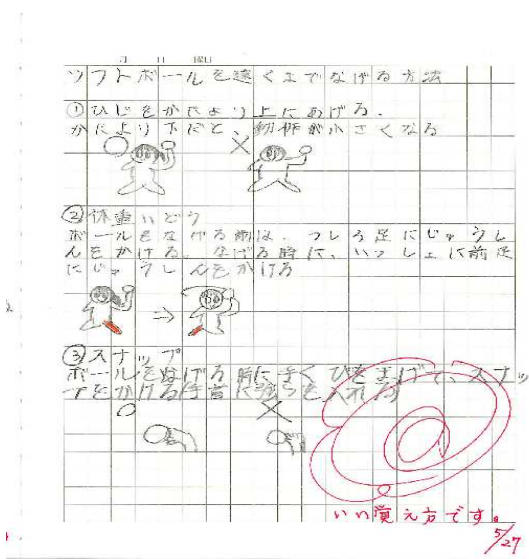 月 日 曜日
ソフトボールを遠くまでなげる方法
①ひじをかたより上にあげる.
かたより下だと、動作が小さくなる
②体重いどう
ボールをなげる前は、つしろ足にじゅうし
んをかける。なげる時に、いっしょに前足
にじゅうしんをかける
③スナップ
ボールをなげる時に手くびをまげて、スナッ
プをかける(手首に力を入れる)
いい覚え方です。
5/27